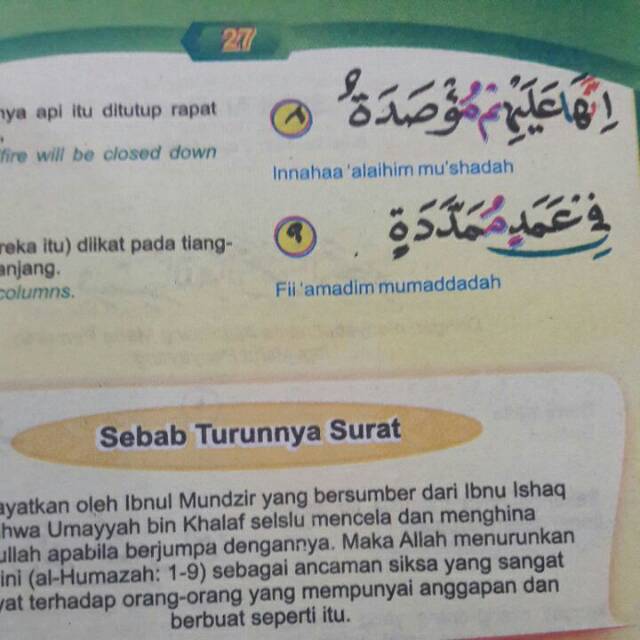 27
nya api itu ditutup rapat
fire will be closed down
اِنَّهَا عَلَيْهِمْ مُّؤْصَدَةٌ ۙ ٨
Innahaa 'alaihim mu'shadah
reka itu) diikat pada tiang-
anjang.
columns.
فِيْ عَمَدٍ مُّمَدَّدَةٍ ٩
Fii 'amadim mumaddadah
Sebab Turunnya Surat
ayatkan oleh Ibnul Mundzir yang bersumber dari Ibnu Ishaq
hwa Umayyah bin Khalaf selslu mencela dan menghina
ullah apabila berjumpa dengannya. Maka Allah menurunkan
ini (al-Humazah: 1-9) sebagai ancaman siksa yang sangat
yat terhadap orang-orang yang mempunyai anggapan dan
berbuat seperti itu.